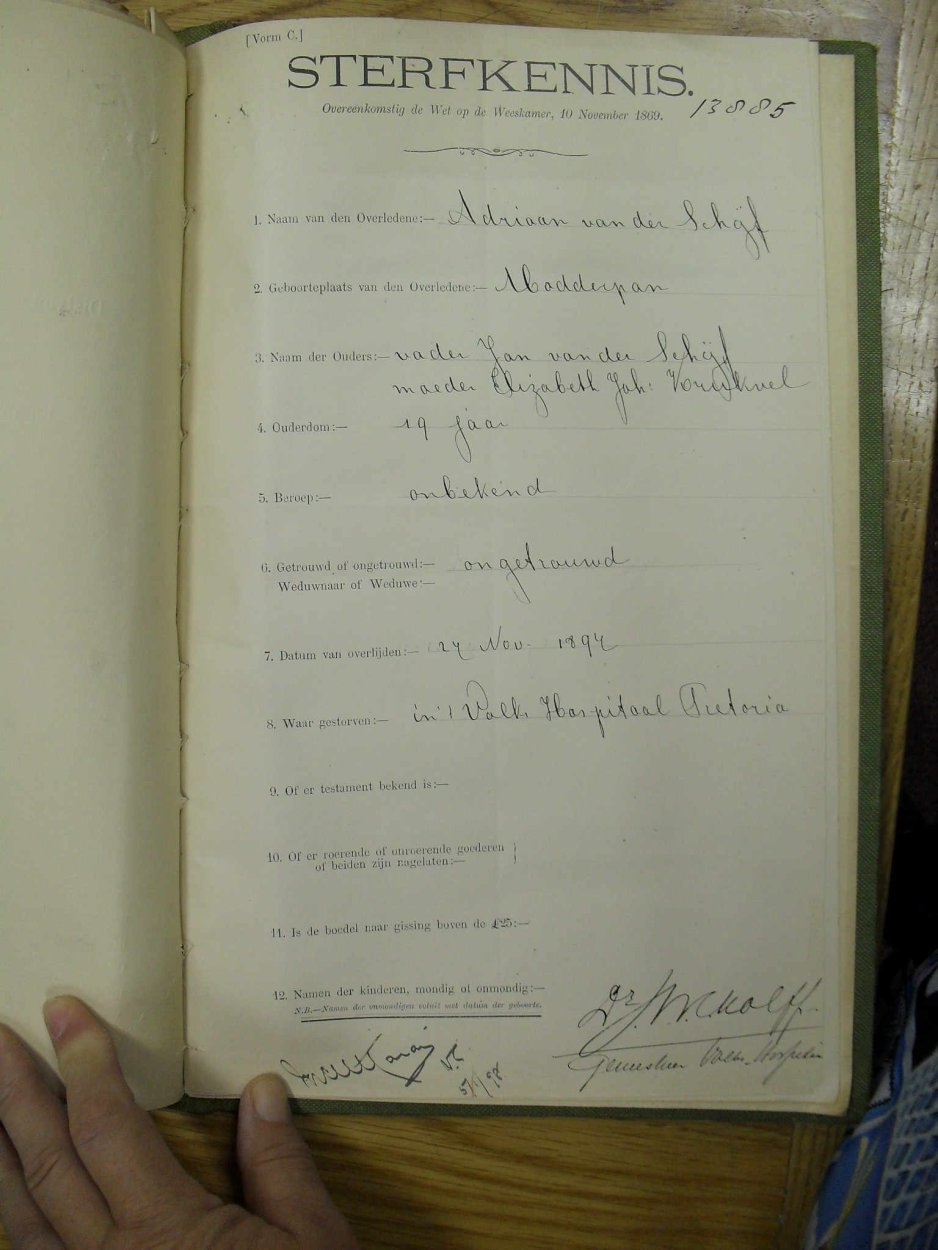 [Vorm C.]
STERFKENNIS.
Overeenkomstig de Wet op de Weeskamer, 10 November 1869.
13885
1. Naam van den Overledene:— Adriaan van der Schijf
2. Geboorteplaats van den Overledene:— Modderpan
3. Naam der Ouders:— vader Jan van der Schijf
moeder Elizabeth Joh:
4. Ouderdom:— 19 jaar
5. Beroep:— onbekend
6. Getrouwd of ongetrouwd:— ongetrouwd
Weduwnaar of Weduwe:—
7. Datum van overlijden:— Nov. 1897
8. Waar gestorven:— in 't Volks Hospitaal Pretoria
9. Of er testament bekend is:—
10. Of er roerende of onroerende goederen
of beiden zijn nagelaten:—
11. Is de boedel naar gissing boven de £25:—
12. Namen der kinderen, mondig of onmondig:—
N.B.—Namen der onmondigen voluit met datum der geboorte.
Dr